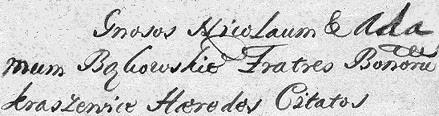 Gnosos Nicolaum & Ada
mum Bąkowskie Fratres Bonorū
kraszewice Hæredes Citatos